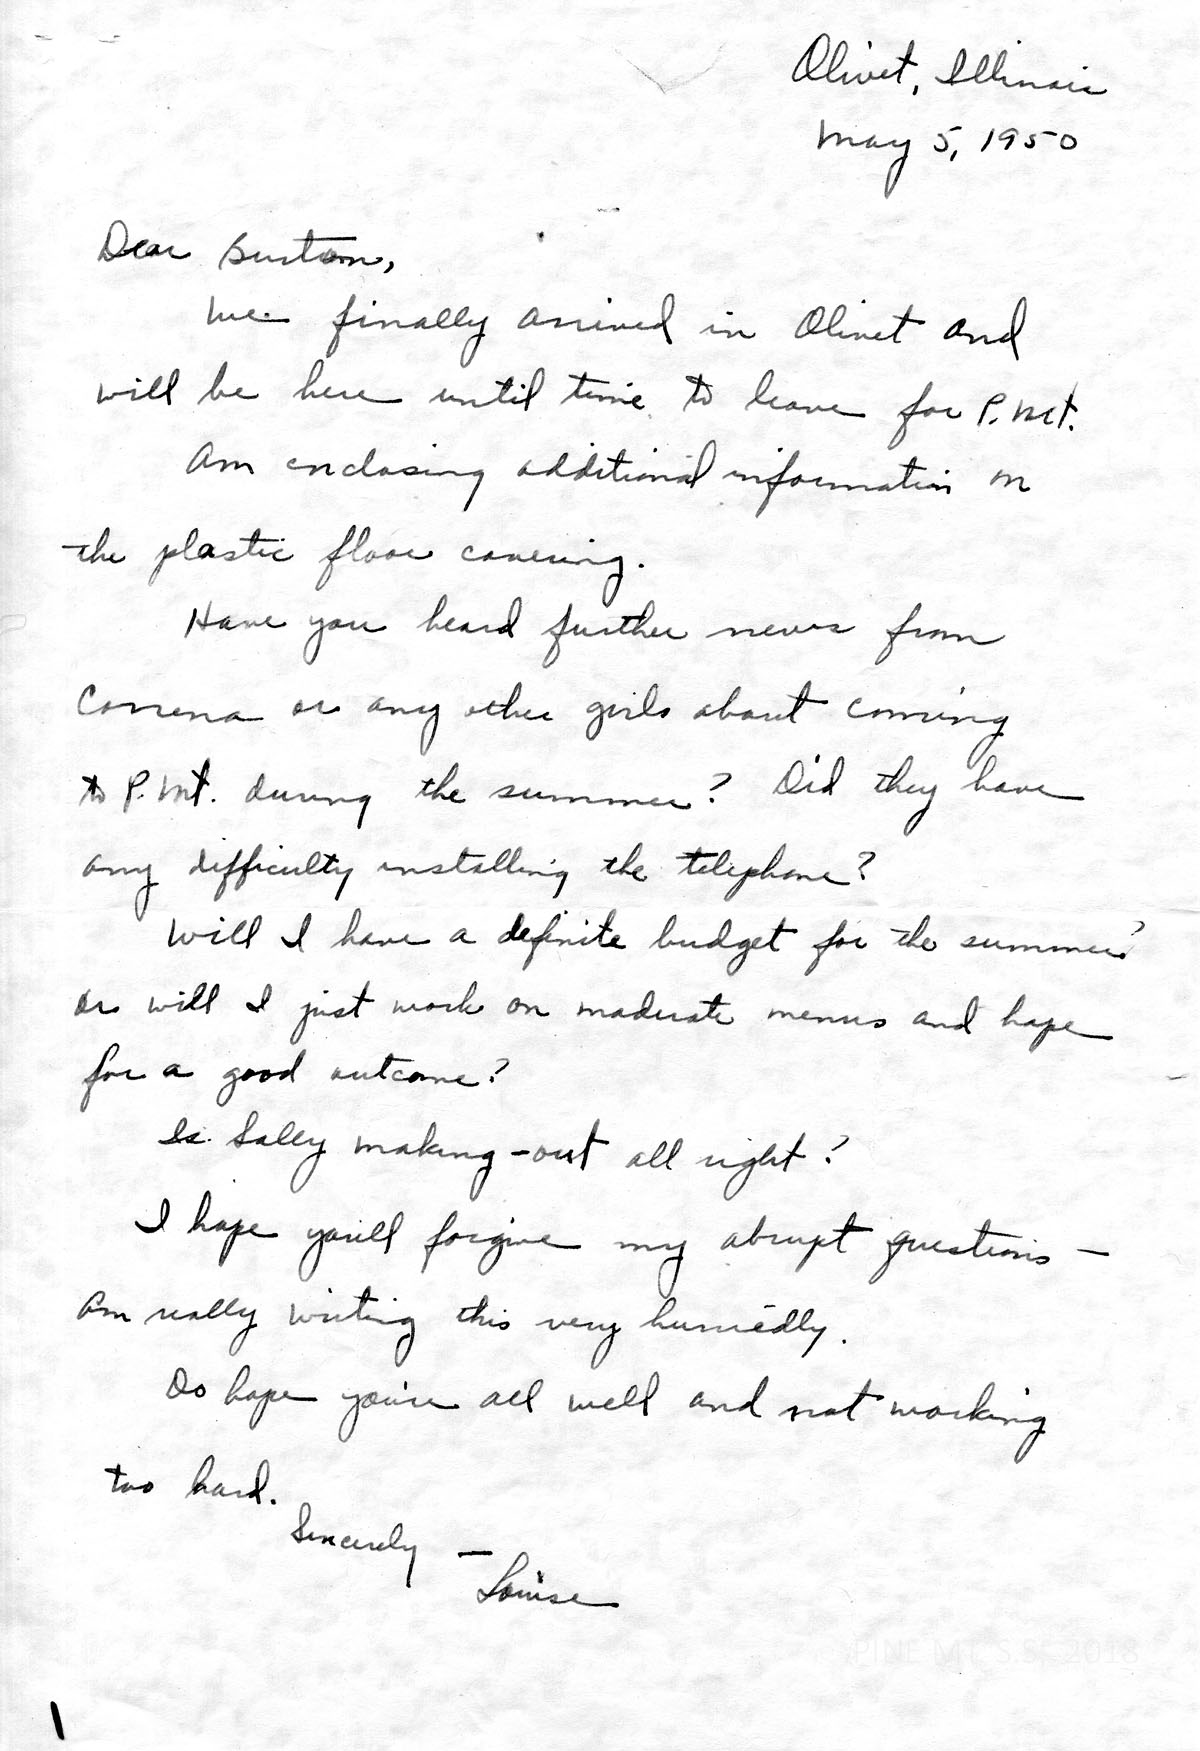 Olivet, Illinois
May 5, 1950
Dear Burton,
We finally arrived in Olivet and
will be here until time to leave for P. Mt.
Am enclosing additional information on
the plastic floor covering.
Have you heard further news from
Correna or any other girls about coming
to P. Mt. during the summer? Did they have
any difficulty installing the telephone?
Will I have a definite budget for the summer?
or will I just work on moderate menus and hope
for a good outcome?
Is Sally making-out all right?
I hope you'll forgive my abrupt questions —
Am really writing this very hurriedly.
Do hope you're all well and not working
too hard.
Sincerely —
Louise
PINE MT. S.S. 2018